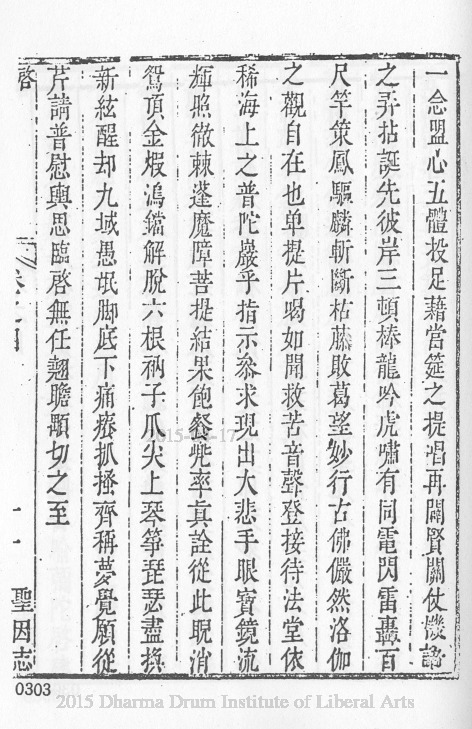 一念盟心五體投足藉當筵之提唱再闢賢關仗幾論
之弄拈誕先彼岸三頓棒龍吟虎嘯有同電閃雷轟百
尺竿策鳳驅麟斬斷枯藤敗葛望妙行古佛儼然洛伽
之觀自在也单提片喝如聞救苦音聲登接待法堂依
稀海上之普陀巖乎指示叅求現出大悲手眼寶鏡流
輝照徹棘蓬魔障菩提結果飽餐兠率真詮從此睍消
鴛頂金煆溈鐺解脫六根衲子爪尖上琴箏琵瑟盡換
新絃醒却九域愚氓脚底下痛癢抓搔齊稱夢覺願從
芹請普慰輿思臨啓無任翹瞻顒切之至
啓
卷之四
十一
聖因志
0303
2015 Dharma Drum Institute of Liberal Arts